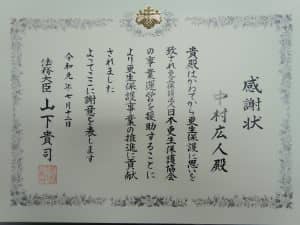 感謝状
中村広人殿
貴殿はかねてから更生保護に思いを
致され更生保護法人日本更生保護協会
の事業運営を援助することに
より更生保護事業の推進に貢献
されました
よってここに謝意を表します
令和元年七月十二日
法務大臣 山下貴司